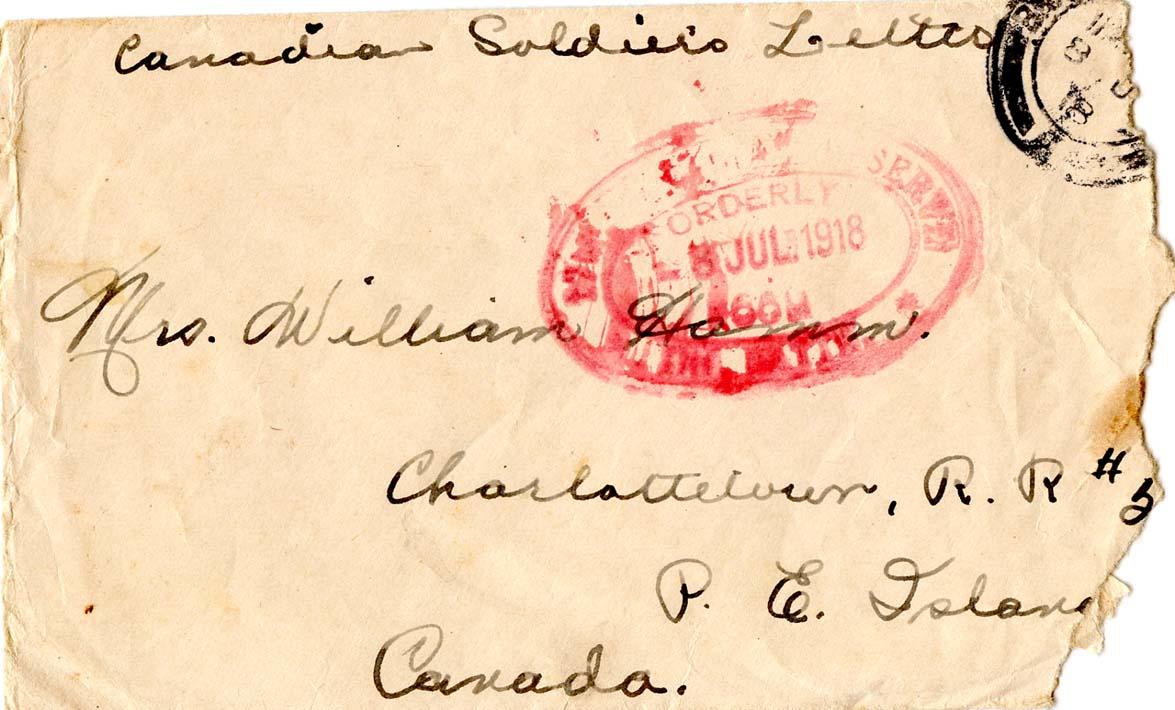 Canadian Soldiers Letter
SERVI
ORDERLY
8 JUL. 1918
Mrs. William Hamm.
Charlottetown, R. R #5
P. E. Islan
Canada.